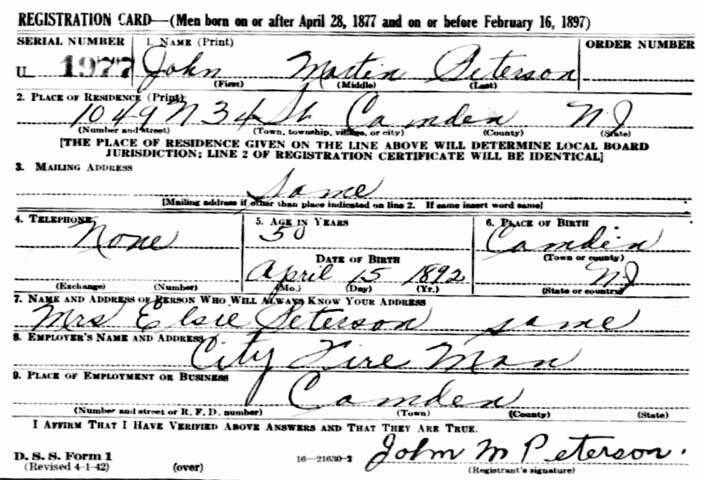 REGISTRATION CARD—(Men born on or after April 28, 1877 and on or before February 16, 1897)
SERIAL NUMBER 1. NAME (Print) ORDER NUMBER
U 1977 John Martin Peterson
(First) (Middle) (Last)
2. PLACE OF RESIDENCE (Print)
1049 N 34 St Camden NJ
(Number and street) (Town, township, village, or city) (County) (State)
[THE PLACE OF RESIDENCE GIVEN ON THE LINE ABOVE WILL DETERMINE LOCAL BOARD
JURISDICTION; LINE 2 OF REGISTRATION CERTIFICATE WILL BE IDENTICAL]
3. MAILING ADDRESS
Same
[Mailing address if other than place indicated on line 2. If same insert word same]
4. TELEPHONE 5. AGE IN YEARS 6. PLACE OF BIRTH
None 50 Camden
DATE OF BIRTH (Town or county)
April 15 1892 NJ
(Exchange) (Number) (Mo.) (Day) (Yr.) (State or country)
7. NAME AND ADDRESS OF PERSON WHO WILL ALWAYS KNOW YOUR ADDRESS
Mrs Elsie Peterson same
8. EMPLOYER'S NAME AND ADDRESS
City Fire Man
9. PLACE OF EMPLOYMENT OR BUSINESS
Camden
(Number and street or R. F. D. number) (Town) (County) (State)
I AFFIRM THAT I HAVE VERIFIED ABOVE ANSWERS AND THAT THEY ARE TRUE.
D. S. S. Form 1
(Revised 4-1-42) (over) 16—21630-2 John M Peterson.
(Registrant's signature)